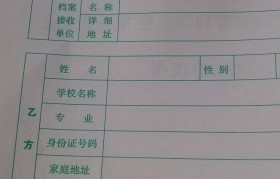 档案 名称
接收 详细
单位 地址
乙方
姓名 性别
学校名称
专业
身份证号码
家庭地址